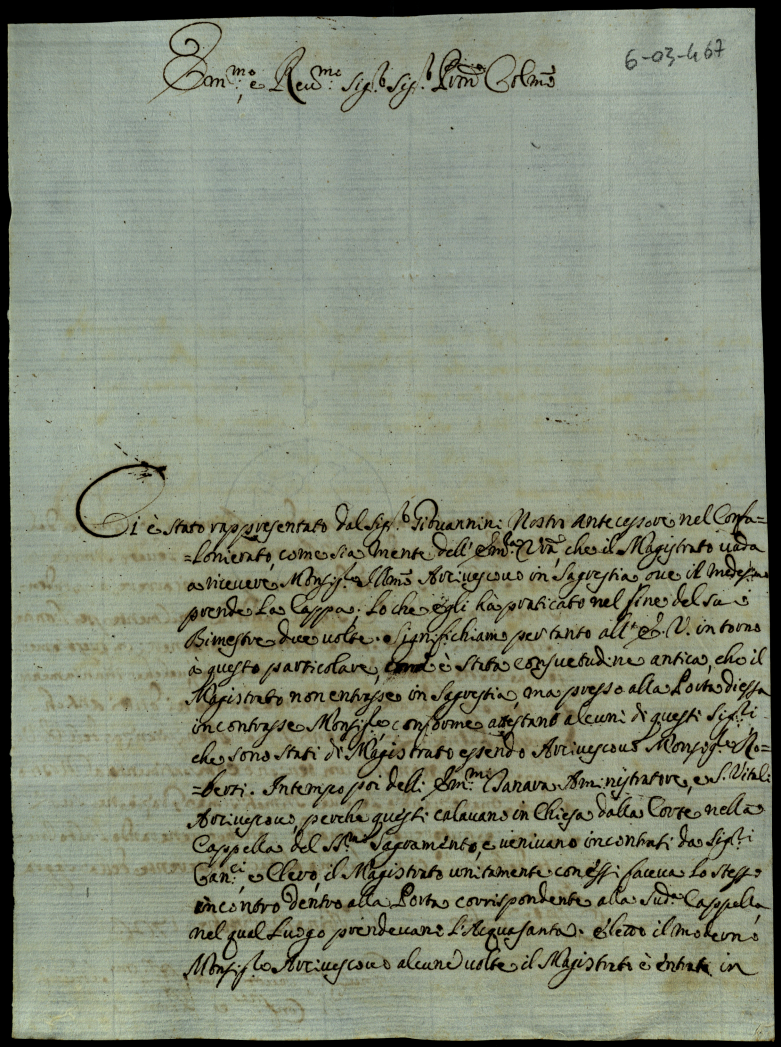 6-03-467
Em.mo e Rev.mo Sig.r Sig.r P'ron Col.mo
Ci è stato rappresentato dal Sig.r Giovannini Nostro Antecessore nel Confa=
=lonierato, come sia mente dell' Em.za V'ra, che il Magistrato vada
a ricevere Monsig.re Ill.mo Arcivescovo in Sagrestia ove il medes.mo
prende La Cappa; Lo che Egli hà praticato nel fine del suo
Bimestre due volte. Significhiamo per tanto all' E. V. intorno
à questo particolare, è stata consuetudine antica, che il
Magistrato non entrasse in Sagrestia, ma presso alla Porta di essa
incontrasse Monsig.re conforme attestano alcuni di questi Sig.ri
che sono stati di Magistrato essendo Arcivescovo Monsig.re Ro=
=berti. In tempo poi delli Em.mi Tanara Aministratore, e S. Vitali
Arcivescovo perche questi calavano in Chiesa dalla Corte nella
Cappella del SS.mo Sagramento, e venivano incontrati da Sig.ri
Can.ci e Clero il Magistrato unitamente con essi faceva Lo stesso
incontro dentro alla Porta corrispondente alla Sud.a Cappella
nel qual Luogo prendevano L'Acqua Santa. Eletto il moderno
Monsig.re Arcivescovo alcune volte il Magistrato è entrato in